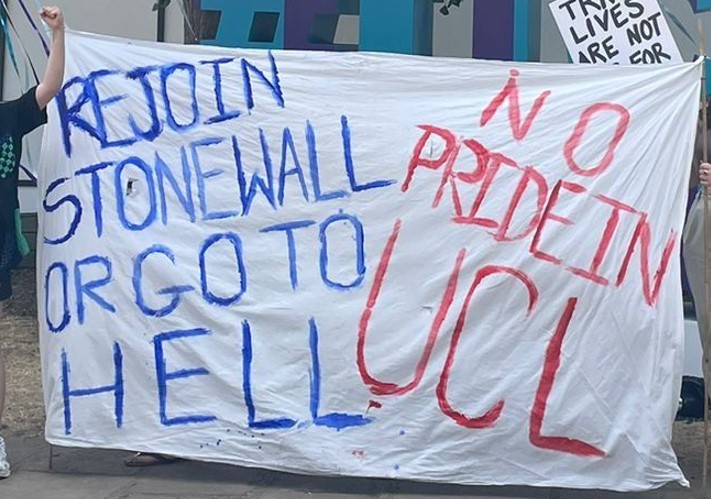 REJOIN
STONEWALL
OR GO TO
HELL
NO
PRIDE IN
UCL
LIVES
ARE NOT
FOR